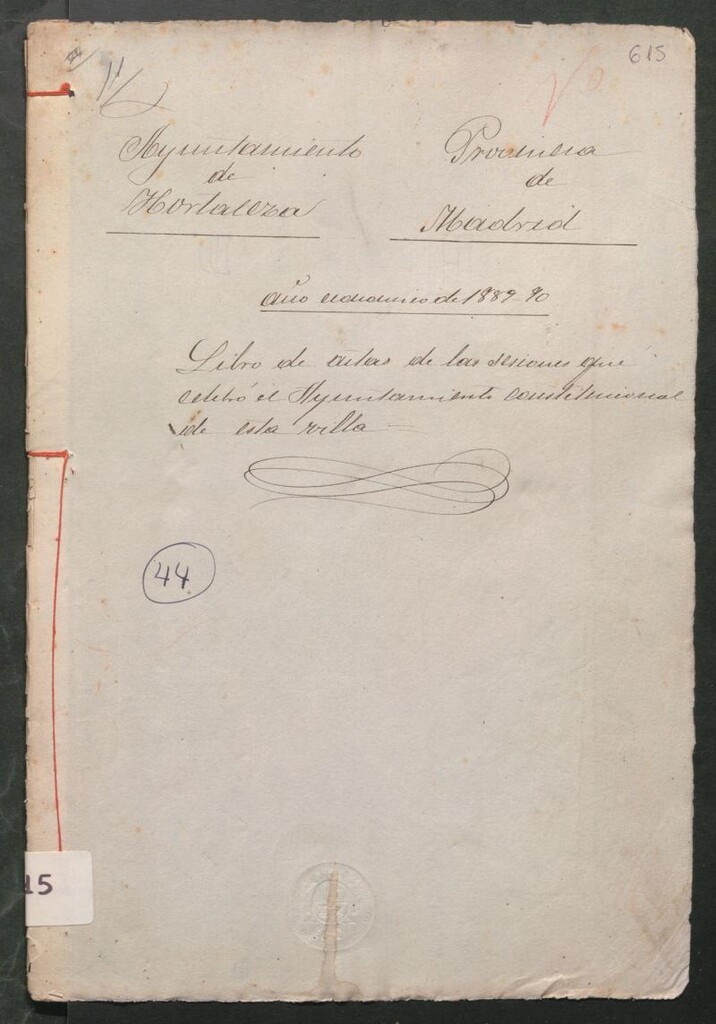 615
Ayuntamiento
de
Hortaleza
Provincia
de
Madrid
Año economico de 1889-90
Libro de actas de las sesiones que
celebró el Ayuntamiento constitucional
de esta villa
44
15